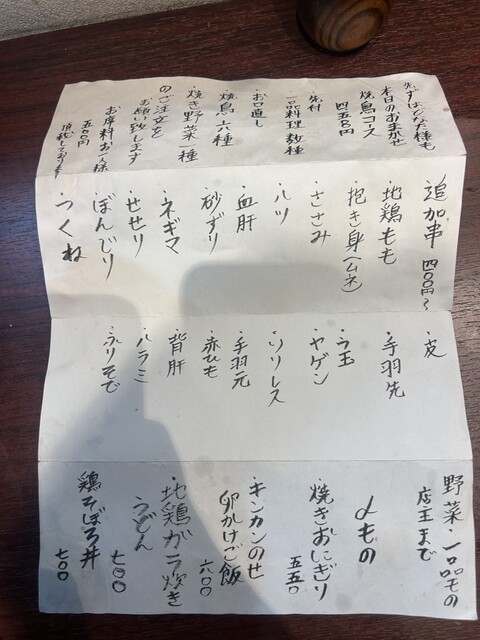 先ずはどなた様も
本日のおまかせ
焼鳥コース
四五〇〇円
・先付
・一品料理数種
・お口直し
・焼鳥六種
・焼き野菜一種
のご注文を
お願い致します
お席料お一人様
五〇〇円
頂戴しております
追加串 四〇〇円〜
・地鶏もも
・抱き身(ムネ)
・ささみ
・ハツ
・血肝
・砂ずり
・ネギマ
・せせり
・ぼんじり
・つくね
・皮
・手羽先
・う玉
・ヤゲン
・ソリレス
・手羽元
・赤ひも
・背肝
・ハラミ
・ふりそで
野菜・一品もの
店主まで
〆もの
・焼きおにぎり
五五〇
・キンカンのせ
卵かけご飯
六〇〇
・地鶏ガラ炊き
うどん
七〇〇
鶏そぼろ丼
七〇〇